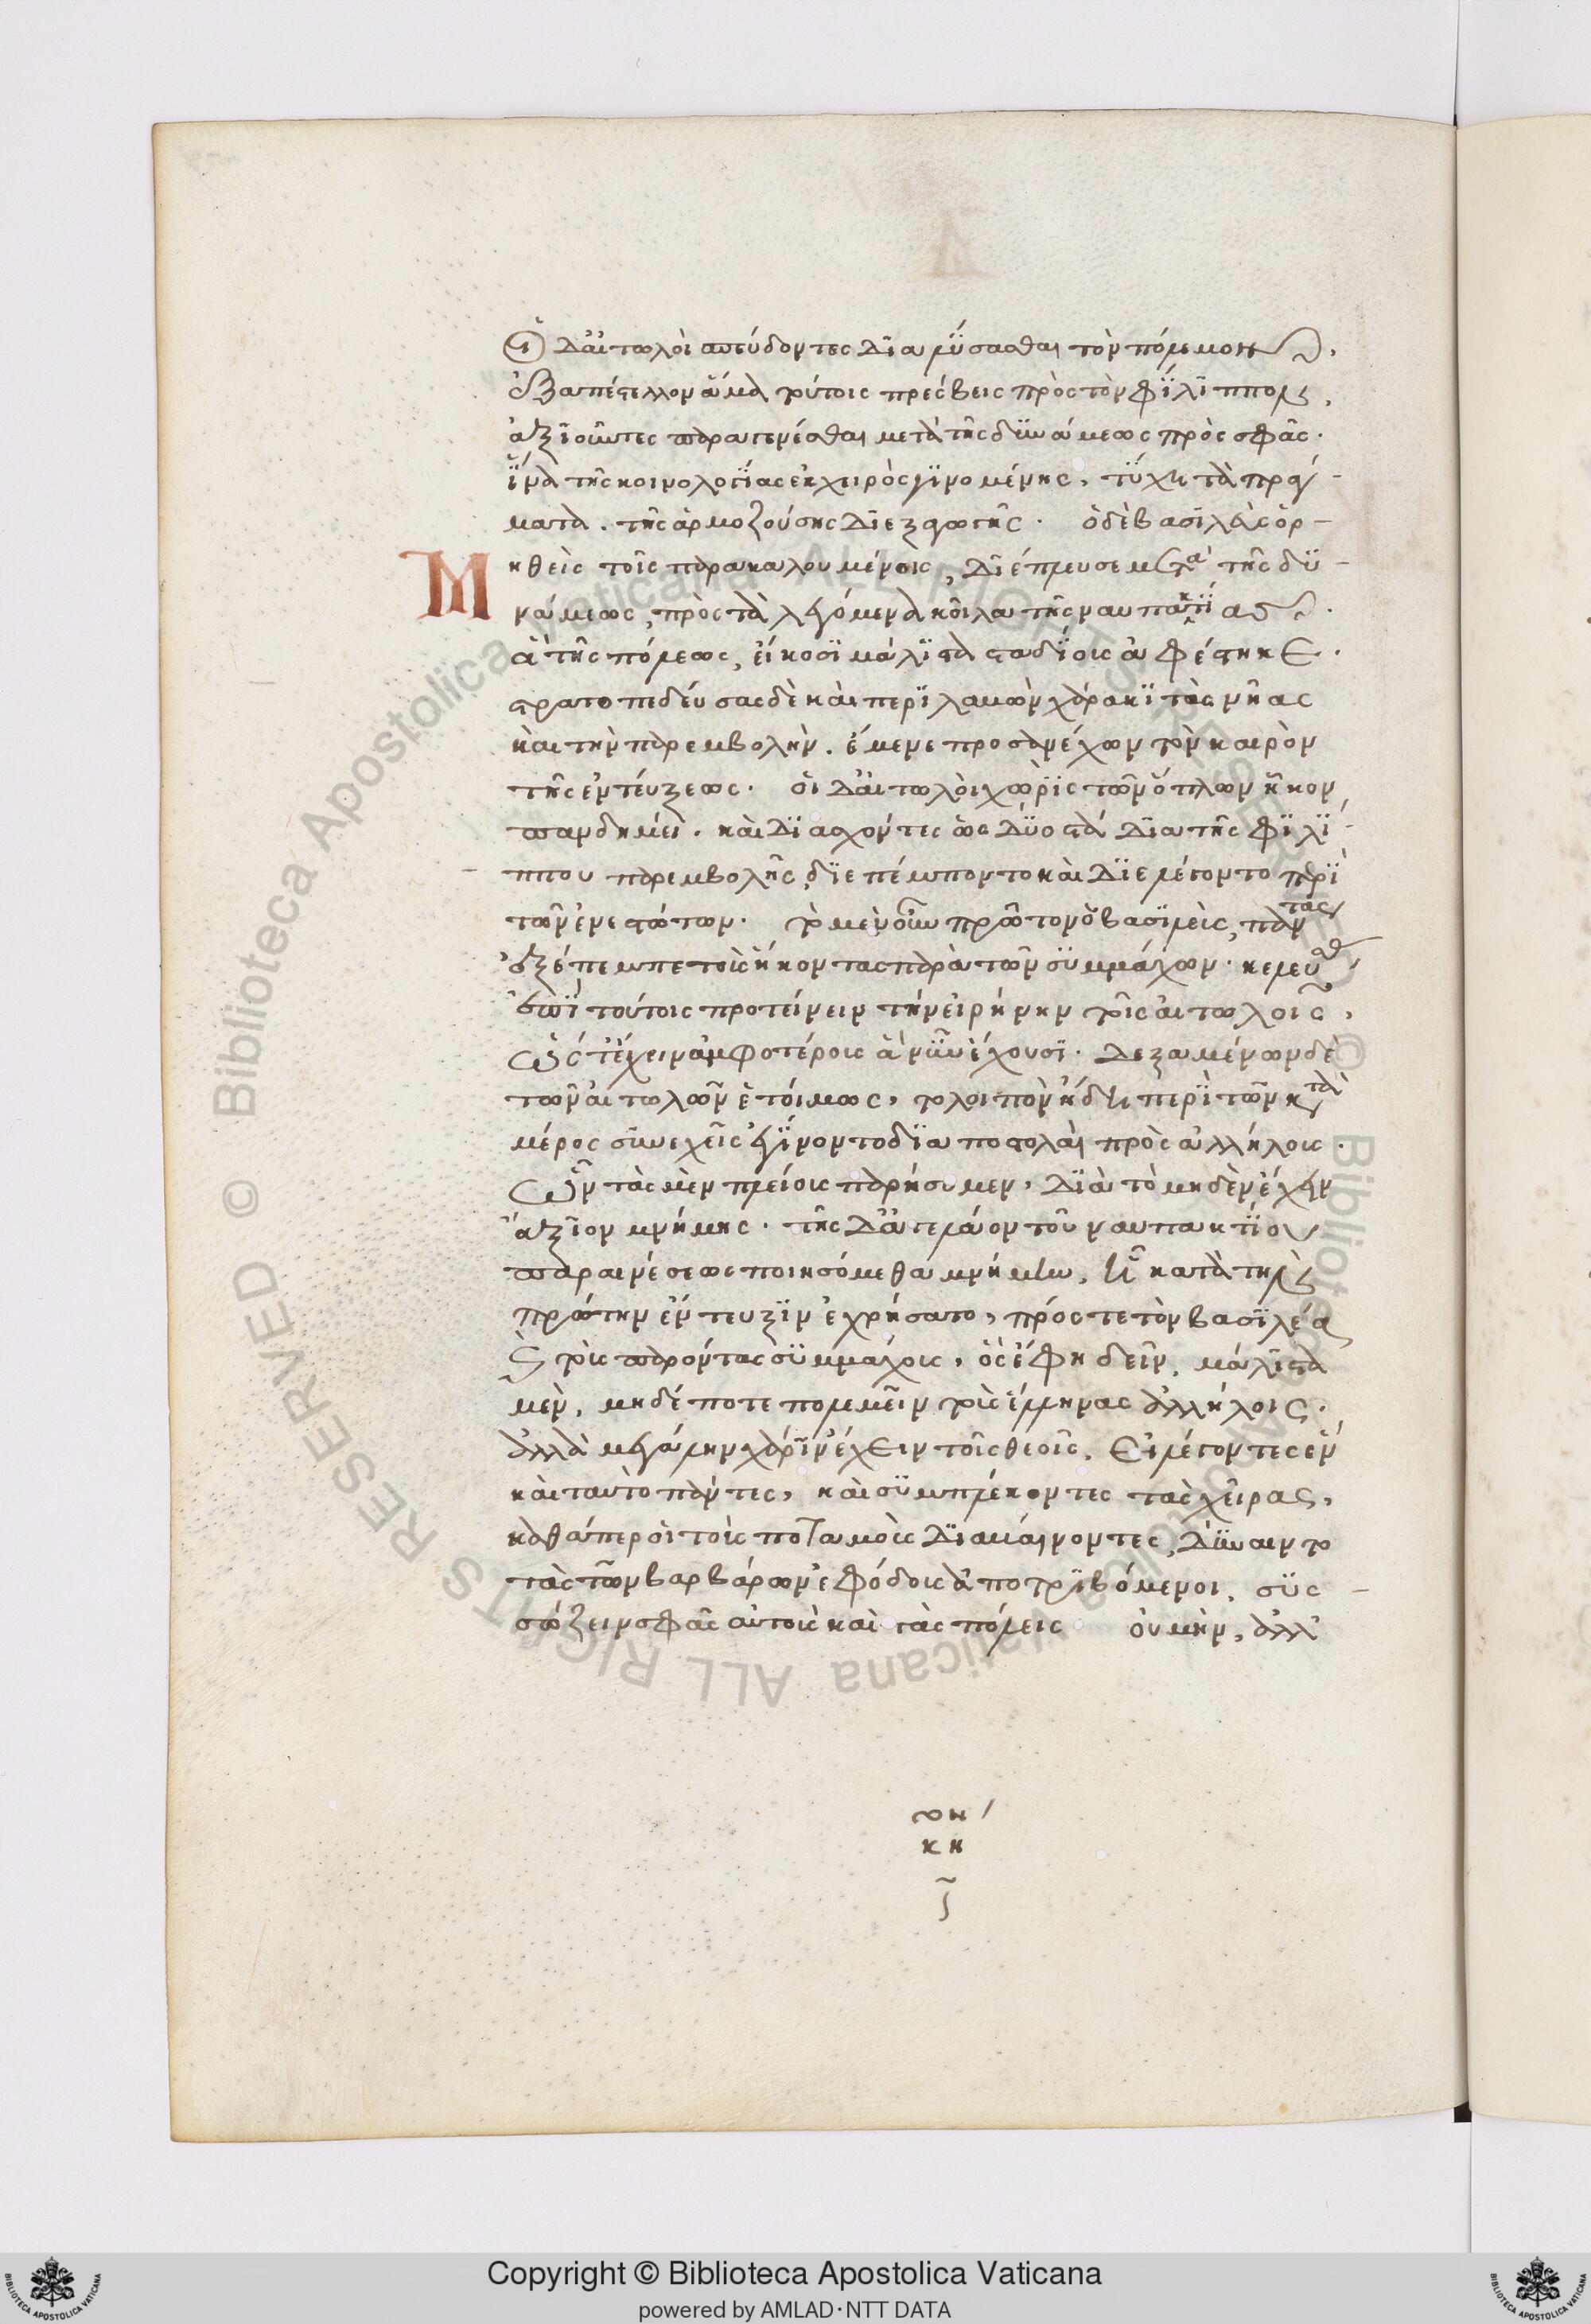 οἱ δ' αἰτωλοὶ σπεύδοντες διαλύσασθαι τὸν πόλεμον,
ἐξαπέστελλον ἅμα τούτοις πρέσβεις πρὸς τὸν φίλιππον,
ἀξιοῦντες παραγενέσθαι μετὰ τῆς δυνάμεως πρὸς σφᾶς·
ἵνα τῆς κοινολογίας ἐκ χειρὸς γινομένης, τύχῃ τὰ πράγ-
ματα. τῆς ἁρμοζούσης διεξαγωγῆς· ὁ δὲ βασιλεὺς ὁρ-
μηθεὶς τοῖς παρακαλουμένοις, διέπλευσε μετὰ τῆς δυ-
νάμεως, πρὸς τὰ λεγόμενα κοῖλα τῆς ναυπακτίας·
ἃ τῆς πόλεως, εἴκοσι μάλιστα σταδίοις ἀφέστηκε·
στρατοπεδεύσας δὲ καὶ περιλαβὼν χάρακι τὰς νῆας
καὶ τὴν παρεμβολὴν. ἔμενε προσανέχων τὸν καιρὸν
τῆς ἐντεύξεως· οἱ δ' αἰτωλοὶ χωρὶς τῶν ὅπλων ἧκον
πανδημεί. καὶ διασχόντες ὡς δύο στάδια τῆς φιλί-
ππου παρεμβολῆς, διεπέμποντο καὶ διελέγοντο περὶ
τῶν ἐνεστώτων· τὸ μὲν οὖν πρῶτον ὁ βασιλεὺς, πάντας
ἐξέπεμπε τοὺς ἥκοντας παρὰ τῶν συμμάχων· κελεύσας
ἐπὶ τούτοις προτείνειν τὴν εἰρήνην τοῖς αἰτωλοῖς,
ὥστ' ἔχειν ἀμφοτέροις ἃ νῦν ἔχουσι· δεξαμένων δὲ
τῶν αἰτωλῶν ἑτοίμως, τὸ λοιπὸν ἤδη περὶ τῶν κατὰ
μέρος συνεχεῖς ἐγίνοντο διαποστολαὶ πρὸς ἀλλήλους·
ὧν τὰς μὲν πλείους παρήσομεν, διὰ τὸ μηδὲν ἔχειν
ἄξιον μνήμης· τῆς δ' ἀγελάου τοῦ ναυπακτίου
παραινέσεως ποιησόμεθα μνήμην, ᾗ κατὰ τὴν
πρώτην ἔντευξιν ἐχρήσατο, πρός τε τὸν βασιλέα
καὶ τοὺς παρόντας συμμάχους, ὃς ἔφη δεῖν, μάλιστα
μὲν, μηδέποτε πολεμεῖν τοὺς ἕλληνας ἀλλήλοις·
ἀλλὰ μεγάλην χάριν ἔχειν τοῖς θεοῖς, εἰ λέγοντες ἓν
καὶ ταὐτὸ πάντες, καὶ συμπλέκοντες τὰς χεῖρας,
καθάπερ οἱ τοὺς ποταμοὺς διαβαίνοντες, δύναιντο
τὰς τῶν βαρβάρων ἐφόδους ἀποτριβόμενοι, συς-
σώζειν σφᾶς αὐτοὺς καὶ τὰς πόλεις οὐ μὴν, ἀλλ'
Copyright © Biblioteca Apostolica Vaticana
powered by AMLAD·NTT DATA